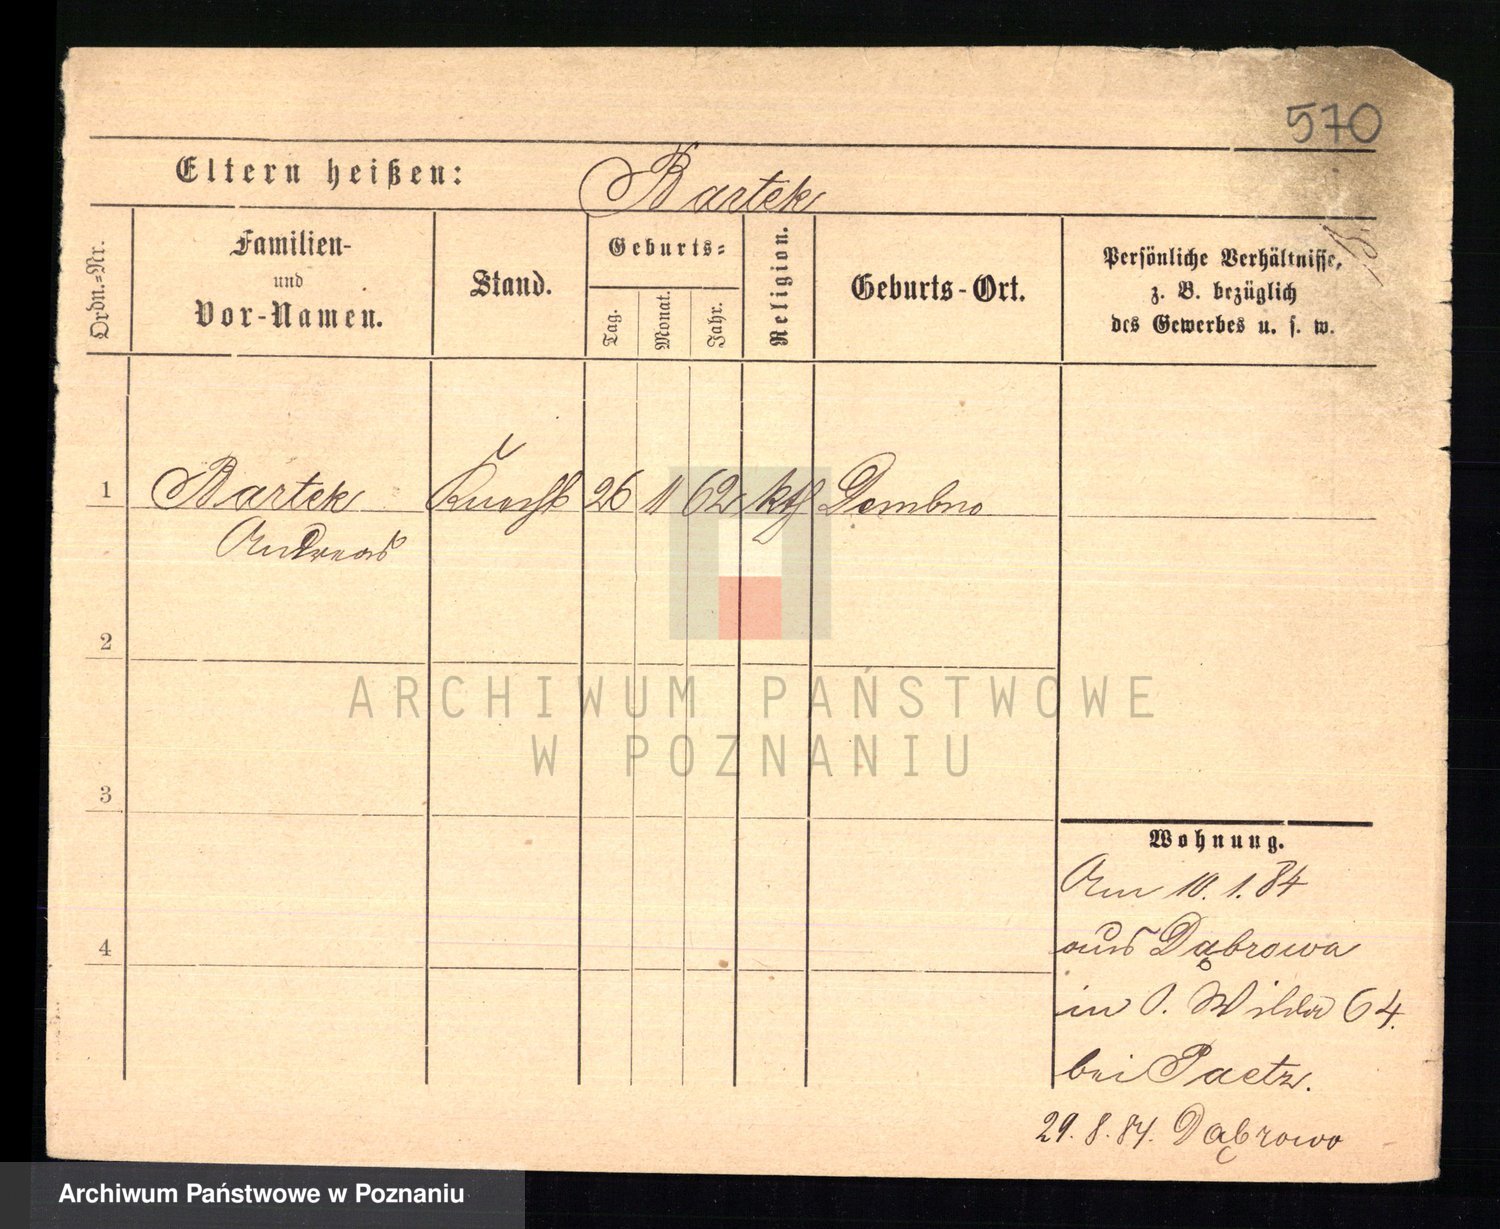 570
Eltern heißen: Bartek
Ordn.=Nr.
Familien-
und
Vor-Namen.
Stand.
Geburts=
Tag.
Monat.
Jahr.
Religion.
Geburts-Ort.
Persönliche Verhältnisse,
z. B. bezüglich
des Gewerbes u. s. w.
1 Bartek Knecht 26 11 62 kth Dembno
Andreas
2
ARCHIWUM PAŃSTWOWE
W POZNANIU
3
Wohnung.
Am 10. 1. 84
4
aus Dąbrowa
in O. Wilda 64.
bei Paetz.
29. 8. 84. Dąbrowo
Archiwum Państwowe w Poznaniu